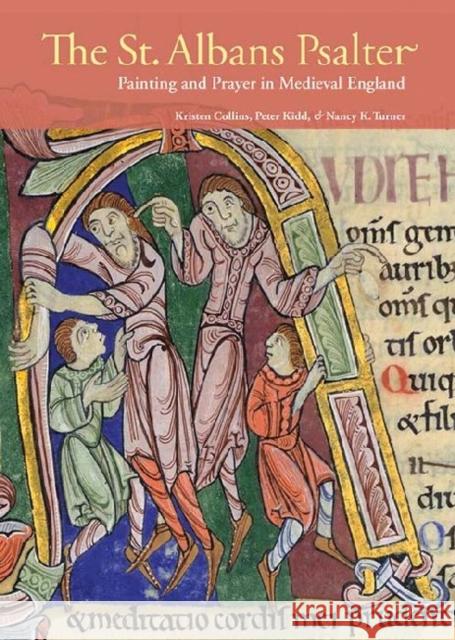 The St. Albans Psalter
Painting and Prayer in Medieval England
Kristen Collins, Peter Kidd, & Nancy K. Turner
UDITE H
om̄s gen
aurib;
om̄s qu
tis orb
Quiq
& fili
diu
& meditatio cordis mei pruden